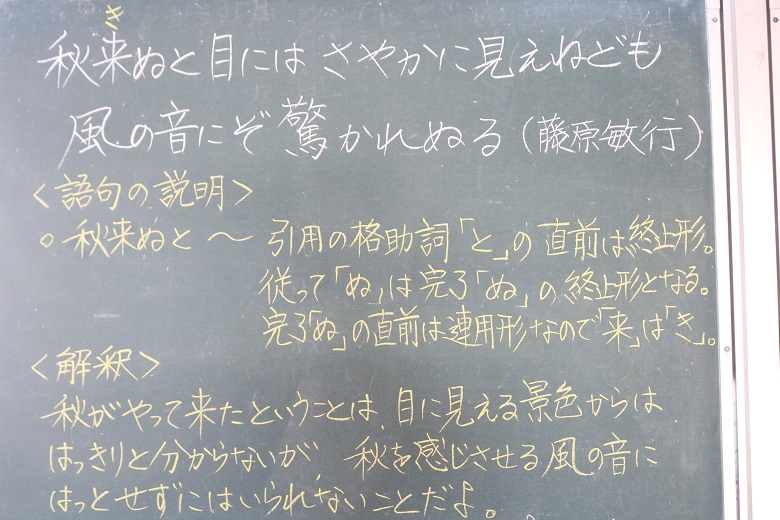 き
秋来ぬと目にはさやかに見えねども
風の音にぞ驚かれぬる(藤原敏行)
<語句の説明>
○秋来ぬと～引用の格助詞「と」の直前は終止形。
従って「ぬ」は完了「ぬ」の終止形となる。
完了「ぬ」の直前は連用形なので「来」は「き」。
<解釈>
秋がやって来たということは、目に見える景色からは
はっきりと分からないが、秋を感じさせる風の音に
はっとせずにはいられないことだよ。